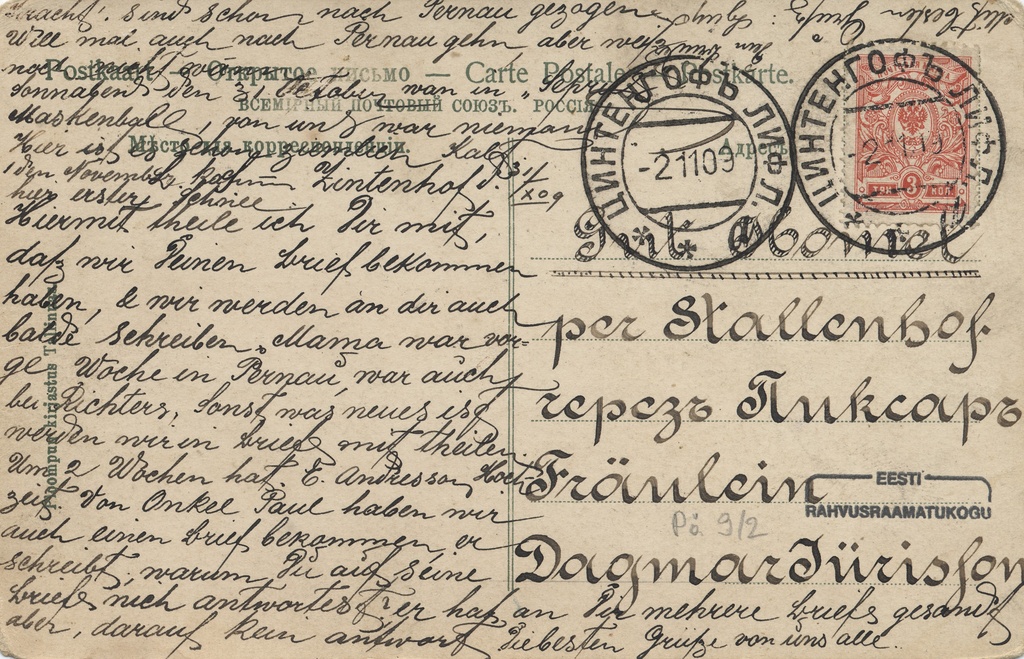 bracht. sind schon nach Pernau gezogen
Will mai auch nach Pernau gehn aber
noch nicht
Postkaart — Открытое письмо — Carte Postale — Postkarte.
Sonnabend den 31 October war in
ВСЕМІРНЫЙ ПОЧТОВЫЙ СОЮЗЪ. РОССІЯ
Maskenball, von uns war niemand
Hier ist es schon ziemlich kalt
Мѣсто для корреспонденціи.
Адресъ
1 den November
Zintenhof d. 31/X 09
hier erster Schnee.
Hiermit theile ich Dir mit,
daß wir Deinen brief bekommen
haben, & wir werden an dir auch
balde schreiben, Mama war vor-
ge Woche in Pernau, war auch
bei Richters, sonst was neues ist
werden wir in brief mit theilen
Um 2 Wochen hat E. Andresson Hoch-
zeit Von Onkel Paul haben wir
auch einen brief bekommen, er
schreibt, warum Du auf seine
briefe nich antwortest? er hat an Dir mehrere briefe gesandt
aber, darauf kein antwort Liebesten Grüße von uns alle.
ЦИНТЕНГОФЪ ЛИФЛ.
-2 11 09
ЦИНТЕНГОФЪ ЛИФЛ.
ТРИ 3 КОП.
Gut
per Stallenhof
черезъ Пиксаръ
Fräulein
Dagmar Jürisson
EESTI
RAHVUSRAAMATUKOGU
Pä 9/2